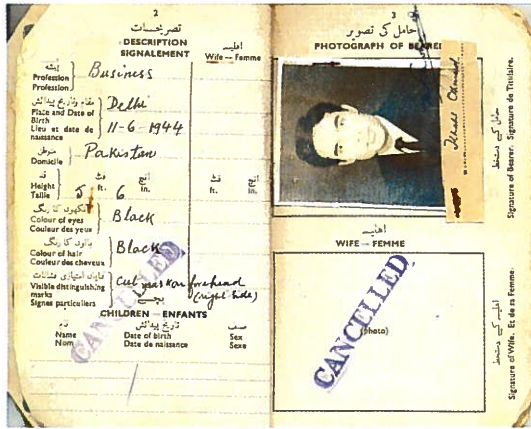 2
تصریحات
DESCRIPTION
SIGNALEMENT
اہلیہ
Wife — Femme
پیشہ
Profession
Profession
Business
مقام و تاریخ پیدائش
Place and Date of
Birth
Lieu et date de
naissance
Delhi
11-6-1944
Domicile
Pakistan
قد
Height
Taille
فٹ
انچ
5 ft. 6 in.
فٹ
انچ
ft. in.
آنکھوں کا رنگ
Colour of eyes
Couleur des yeux
Black
بالوں کا رنگ
Colour of hair
Couleur des cheveux
Black
نمایاں امتیازی نشانات
Visible distinguishing
marks
Signes particuliers
Cut forehead
(right side)
CANCELLED
بچے
CHILDREN — ENFANTS
نام
Name
Nom
تاریخ پیدائش
Date of birth
Date de naissance
صنف
Sex
Sexe
3
حامل کی تصویر
PHOTOGRAPH OF BEARE
حامل کے دستخط
Signature of Bearer. Signature de Titulaire.
اہلیہ
WIFE — FEMME
(photo)
CANCELLED
اہلیہ کے دستخط
Signature of Wife. Et de sa Femme.